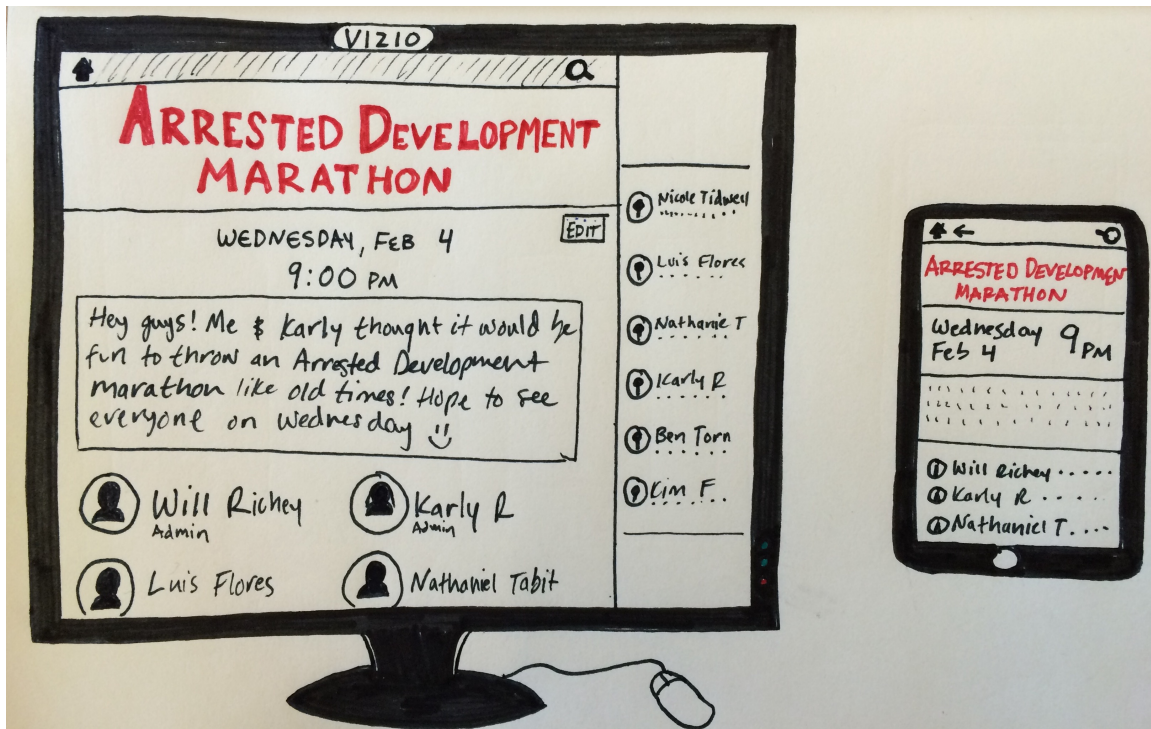 VIZIO
ARRESTED DEVELOPMENT
MARATHON
EDIT
WEDNESDAY, FEB 4
9:00 PM
Hey guys! Me & Karly thought it would be
fun to throw an Arrested Development
marathon like old times! Hope to see
everyone on Wednesday
Will Richey
Admin
Karly R
Admin
Luis Flores
Nathaniel Tabit
Nicole Tidwell
Luis Flores
Nathanie T
Karly R
Ben Torn
Kim F
ARRESTED DEVELOPMEN
MARATHON
Wednesday
Feb 4
9 PM
Will Richey
Karly R
Nathaniel T